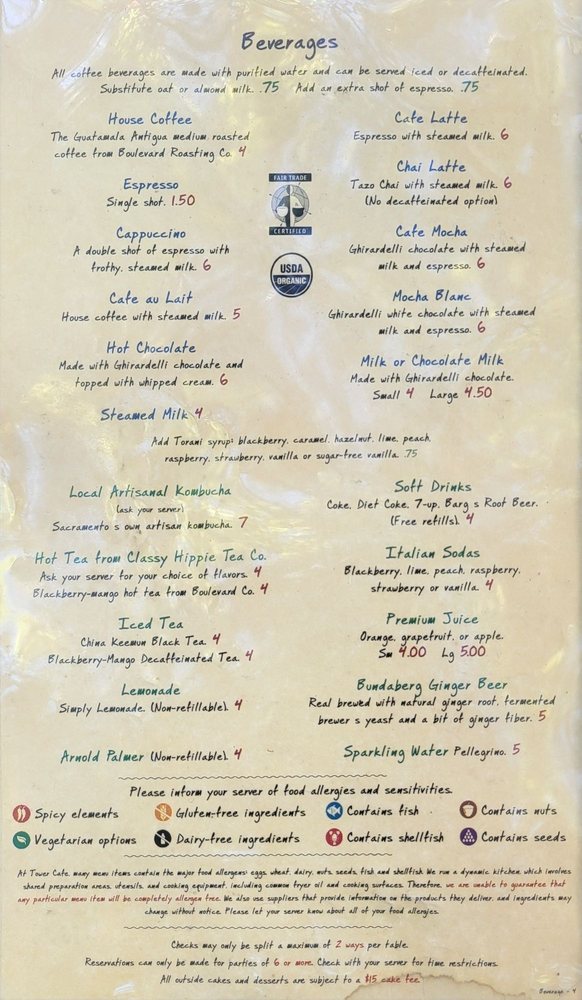 Beverages
All coffee beverages are made with purified water and can be served iced or decaffeinated.
Substitute oat or almond milk. .75 Add an extra shot of espresso. .75
House Coffee
The Guatamala Antigua medium roasted
coffee from Boulevard Roasting Co. 4
Espresso
Single shot. 1.50
Cappuccino
A double shot of espresso with
frothy, steamed milk. 6
Cafe au Lait
House coffee with steamed milk. 5
Hot Chocolate
Made with Ghirardelli chocolate and
topped with whipped cream. 6
Steamed Milk 4
FAIR TRADE
CERTIFIED
USDA
ORGANIC
Cafe Latte
Espresso with steamed milk. 6
Chai Latte
Tazo Chai with steamed milk. 6
(No decaffeinated option)
Cafe Mocha
Ghirardelli chocolate with steamed
milk and espresso. 6
Mocha Blanc
Ghirardelli white chocolate with steamed
milk and espresso. 6
Milk or Chocolate Milk
Made with Ghirardelli chocolate.
Small 4 Large 4.50
Add Torani syrup: blackberry, caramel, hazelnut, lime, peach,
raspberry, strawberry, vanilla or sugar-free vanilla. .75
Local Artisanal Kombucha
(ask your server)
Sacramento s own artisan kombucha. 7
Hot Tea from Classy Hippie Tea Co.
Ask your server for your choice of flavors. 4
Blackberry-mango hot tea from Boulevard Co. 4
Iced Tea
China Keemun Black Tea. 4
Blackberry-Mango Decaffeinated Tea. 4
Lemonade
Simply Lemonade. (Non-refillable). 4
Arnold Palmer (Non-refillable). 4
Soft Drinks
Coke, Diet Coke, 7-up, Barq s Root Beer.
(Free refills). 4
Italian Sodas
Blackberry, lime, peach, raspberry,
strawberry or vanilla. 4
Premium Juice
Orange, grapefruit, or apple.
Sm 4.00 Lg 5.00
Bundaberg Ginger Beer
Real brewed with natural ginger root, fermented
brewer s yeast and a bit of ginger fiber. 5
Sparkling Water Pellegrino. 5
Please inform your server of food allergies and sensitivities.
Spicy elements Gluten-free ingredients Contains fish Contains nuts
Vegetarian options Dairy-free ingredients Contains shellfish Contains seeds
At Tower Cafe, many menu items contain the major food allergens: eggs, wheat, dairy, nuts, seeds, fish and shellfish. We run a dynamic kitchen which involves
shared preparation areas, utensils, and cooking equipment, including common fryer oil and cooking surfaces. Therefore, we are unable to guarantee that
any particular menu item will be completely allergen free. We also use suppliers that provide information on the products they deliver, and ingredients may
change without notice. Please let your server know about all of your food allergies.
Checks may only be split a maximum of 2 ways per table.
Reservations can only be made for parties of 6 or more. Check with your server for time restrictions.
All outside cakes and desserts are subject to a $15 cake fee.
Beverage - 4